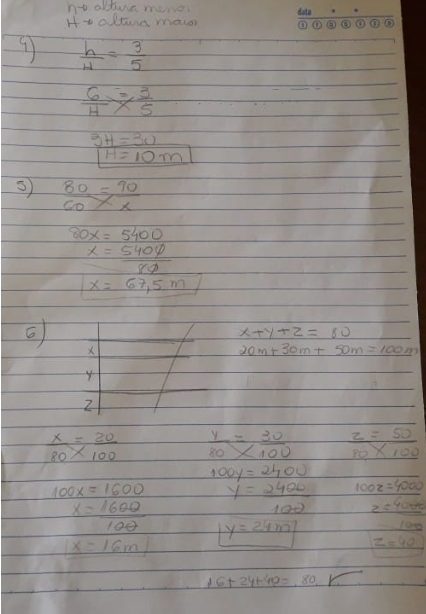 h → altura menor
H → altura maior
data
4) h/H = 3/5
6/H = 3/5
3H = 30
H = 10 m
5) 80/60 = 90/x
80x = 5400
x = 5400/80
x = 67,5 m
6) x + y + z = 80
20m + 30m + 50m = 100m
x
y
z
x/80 = 20/100
100x = 1600
x = 1600/100
x = 16m
y/80 = 30/100
100y = 2400
y = 2400/100
y = 24m
z/80 = 50/100
100z = 4000
z = 4000/100
z = 40
16 + 24 + 40 = 80 ✓